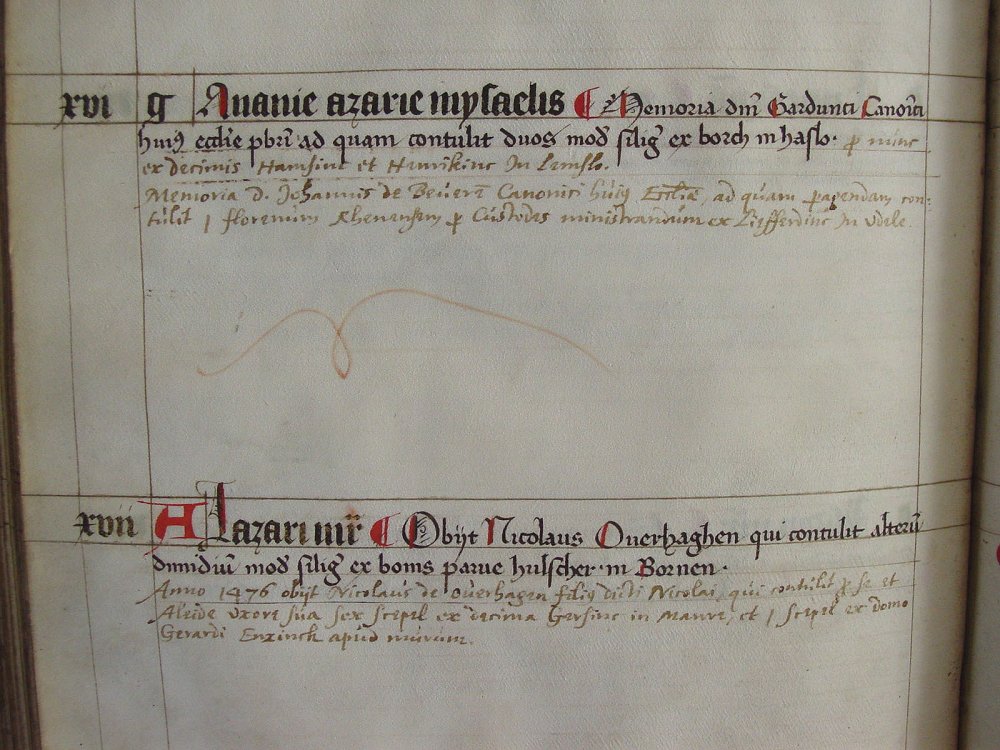 xvi g Ananie azarie mysaelis ¶ Memoria dnī Gardunci Canonīci
huiꝰ ecclīe pbrī ad quam contulit duos mod̄ siligī ex borch in haslo. ꝓ nunc
ex decimis Hamsinc et Henrikinc In Lemslo.
Memoria D. Johannis de Beuerē Canonici huiꝰ Eccliæ, ad quam ꝑagendam con-
tulit 1 florenum Rhenensem ꝑ Custodes ministrandum ex Liefferdinc In Vdele.
xvii A Lazari mr̄ ¶ Obijt Nicolaus Ouerhaghen qui contulit alterū
dimidiū mod̄ siligī ex bonis parue hulscher in Bornen.
Anno 1476 obijt Nicolaus de Ouerhagen filiꝰ dicti Nicolai, qui contulit ꝓ se et
Aleide vxore sua sex scepel ex decima Gersinc in Manre, et 1 scepel ex domo
Gerardi Enzinck apud murum.